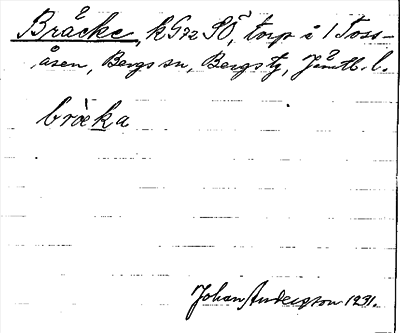 Bråcke, kG72 SÖ, torp i 1 Toss-
åsen, Bergs sn, Bergs tg, Jämtl. l.
bròeka
Johan Anderson 1931.